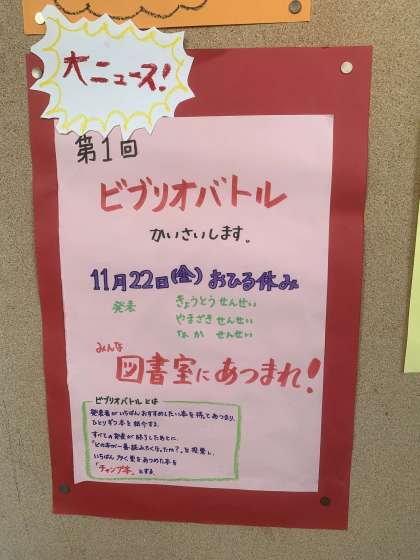 大ニュース!
第1回
ビブリオバトル
かいさいします。
11月22日(金) おひる休み
発表 きょうとうせんせい
やまざきせんせい
なか せんせい
みんな
図書室にあつまれ!
ビブリオバトルとは
発表者がいちばんおすすめしたい本を持ってあつまり、
ひとりずつ本を紹介する。
すべての発表が終了したあとに、
"どの本が一番読みたくなったか?"を投票し、
いちばん多く票をあつめた本を
「チャンプ本」とする。